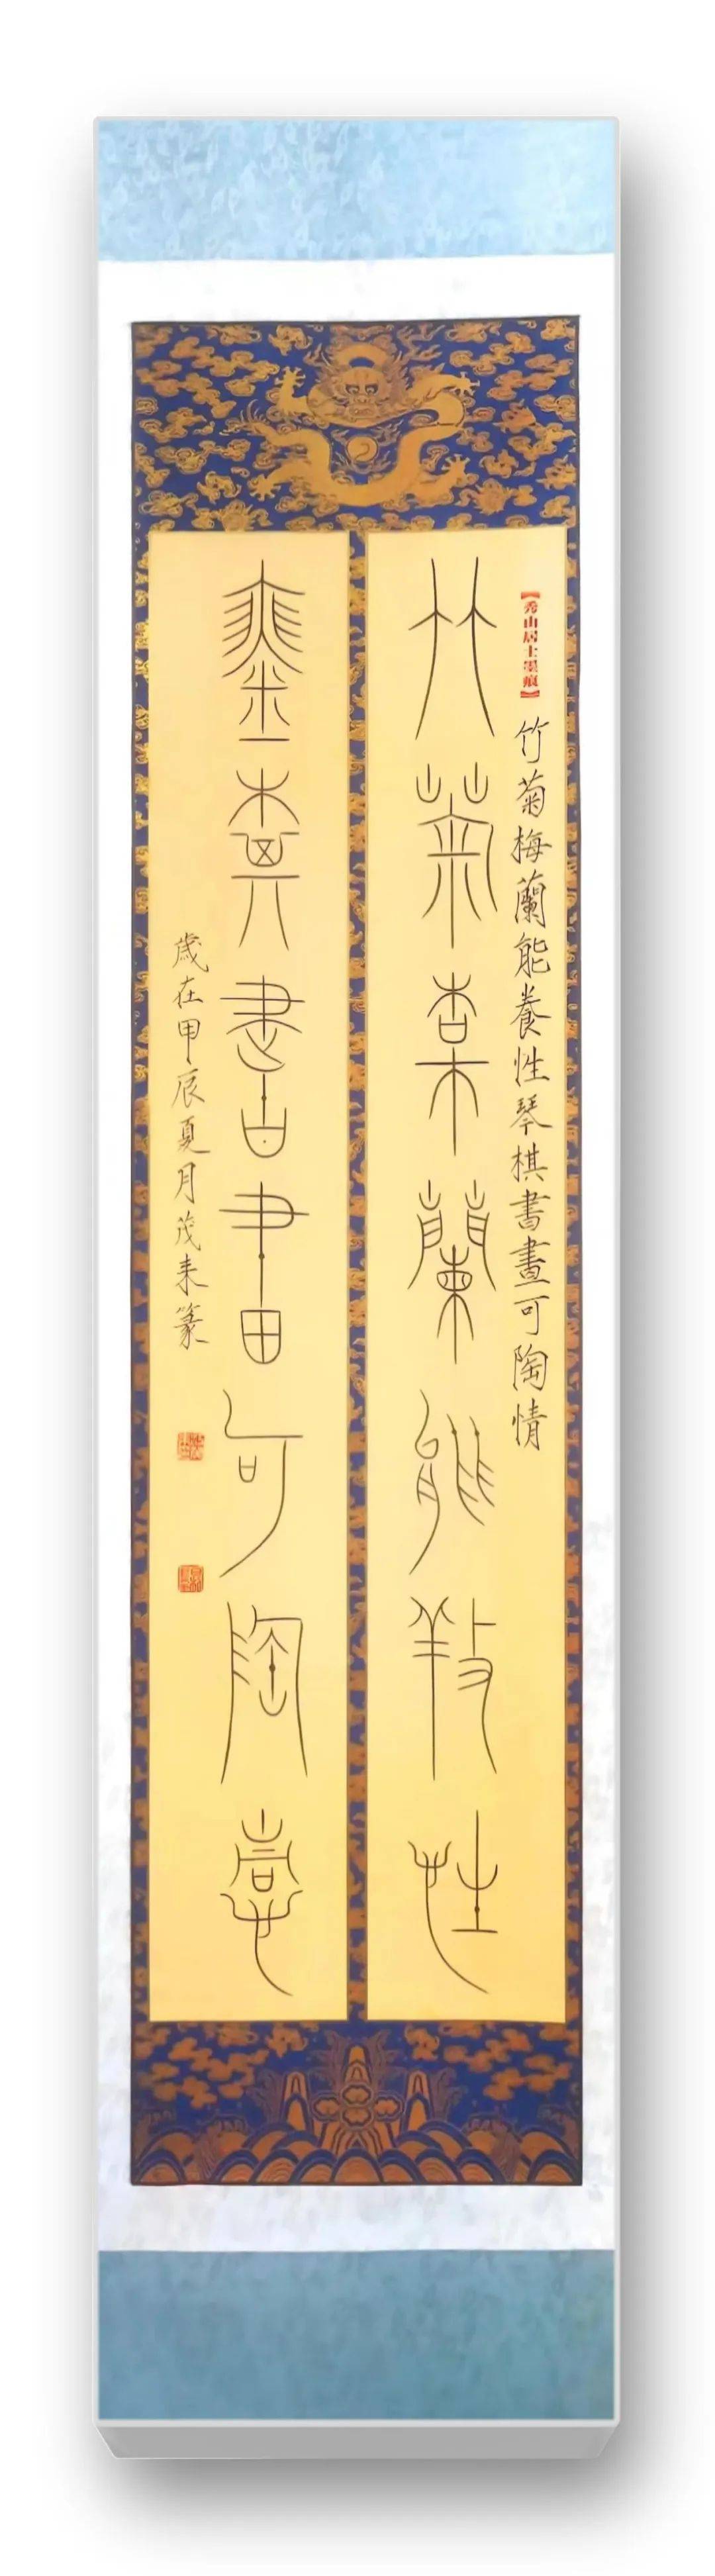 【秀山居士墨痕】
竹菊梅蘭能養性琴棋書畫可陶情
竹菊梅蘭能養性
琴棋書畫可陶情
歲在甲辰夏月茂來篆